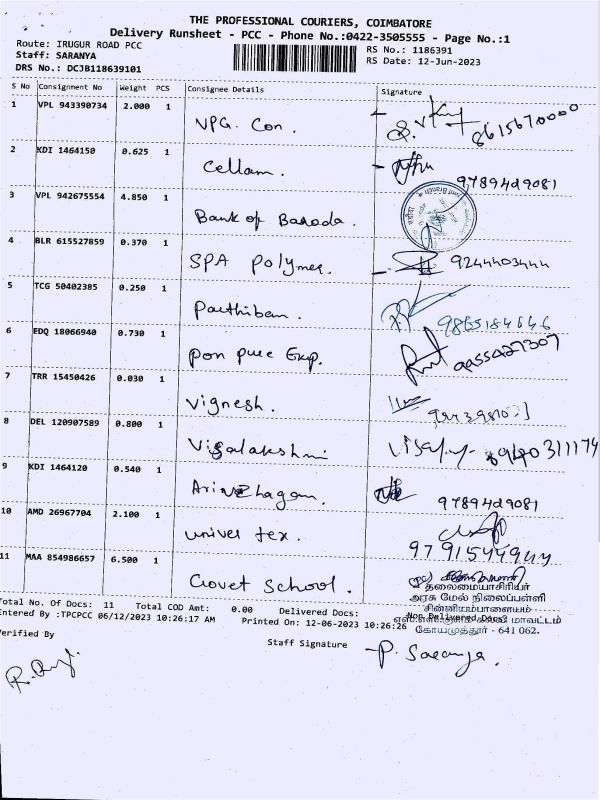 THE PROFESSIONAL COURIERS, COIMBATORE
Delivery Runsheet - PCC - Phone No.:0422-3505555 - Page No.:1
Route: IRUGUR ROAD PCC
Staff: SARANYA
DRS No.: DCJB118639101
RS No.: 1186391
RS Date: 12-Jun-2023
S No Consignment No Weight PCS Consignee Details Signature
1 VPL 943390734 2.000 1 VPG. Con. 8615670000
2 KDI 1464150 0.625 1 Cellam. 9789429081
3 VPL 942675554 4.850 1 Bank of Baroda.
4 BLR 615527859 0.370 1 SPA Polymer. 9244403444
5 TCG 50402385 0.250 1 Parthiban. 9865184646
6 EDQ 18066940 0.730 1 Pon pure Exp. 9455427307
7 TRR 15450426 0.030 1 Vignesh.
8 DEL 120907589 0.800 1 Visalakshmi
9 KDI 1464120 0.540 1 9789429081
10 AMD 26967704 2.100 1 univer tex. 9791544944
11 MAA 854986657 6.500 1 Govet School.
தலைமையாசிரியர்
அரசு மேல் நிலைப்பள்ளி
சின்னியம்பாளையம்
மாவட்டம்
கோயமுத்தூர் - 641 062.
Total No. Of Docs: 11 Total COD Amt: 0.00 Delivered Docs: Non Delivered Docs:
Entered By :TPCPCC 06/12/2023 10:26:17 AM Printed On: 12-06-2023 10:26:26
Verified By Staff Signature P. Saranya.